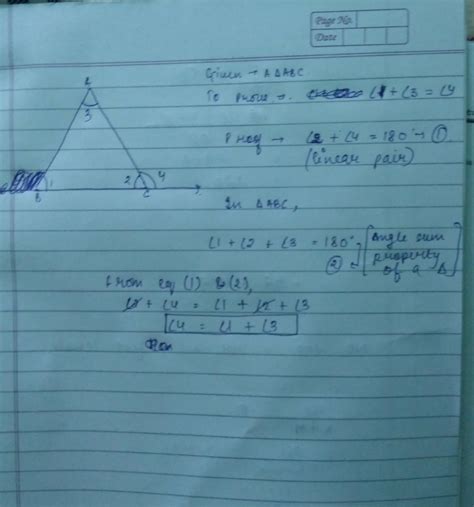 Page No.
Date
Given → A ΔABC
To prove → ∠1 + ∠3 = ∠4
Proof → ∠2 + ∠4 = 180° → ①
(linear pair)
In ΔABC,
∠1 + ∠2 + ∠3 = 180° [Angle sum
② property
of a Δ]
from eq (1) & (2),
∠2 + ∠4 = ∠1 + ∠2 + ∠3
∠4 = ∠1 + ∠3
A
3
1
2
4
B
C